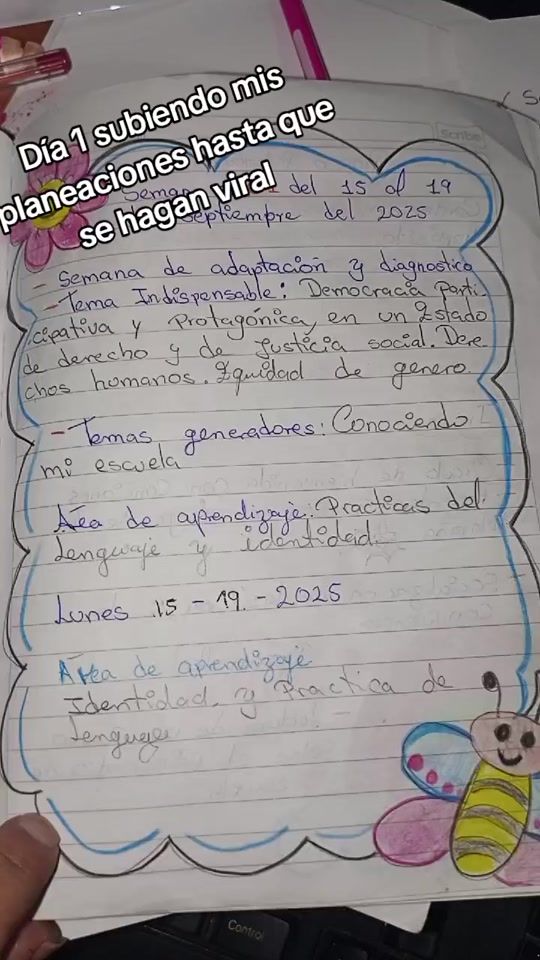 Día 1 subiendo mis
planeaciones hasta que
se hagan viral
Scribe
del 15 al 19
septiembre del 2025
- Semana de adaptación y diagnostico
- Tema Indispensable: Democracia Parti
cipativa y Protagónica, en un Estado
de derecho y de Justicia social. Dere
chos humanos. Equidad de genero.
- Temas generadores: Conociendo
mi escuela
Aea de aprendizaje: Practicas del
Lenguaje y identidad.
Lunes 15 - 19 - 2025
Area de aprendizaje
Identidad y Practica de
Lenguaje
Control